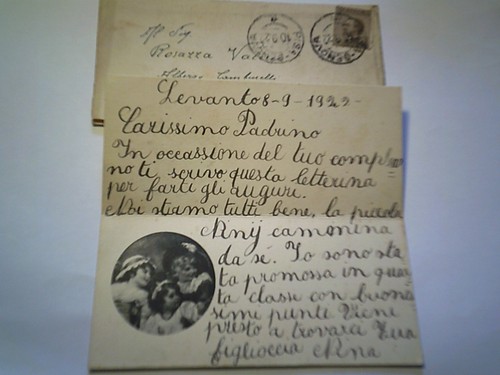 Al Sig
Rosazza
Levanto 8-9-1922-
Carissimo Padrino
In occassione del tuo complean=
no ti scrivo questa letterina
per farti gli auguri.
Noi stiamo tutti bene, la piccola
Ninij cammina
da sé. Io sono sta
ta promossa in quar
ta classe con buonis
simi punti Vieni
presto a trovarci Tua
figlioccia Nina
GENOVA